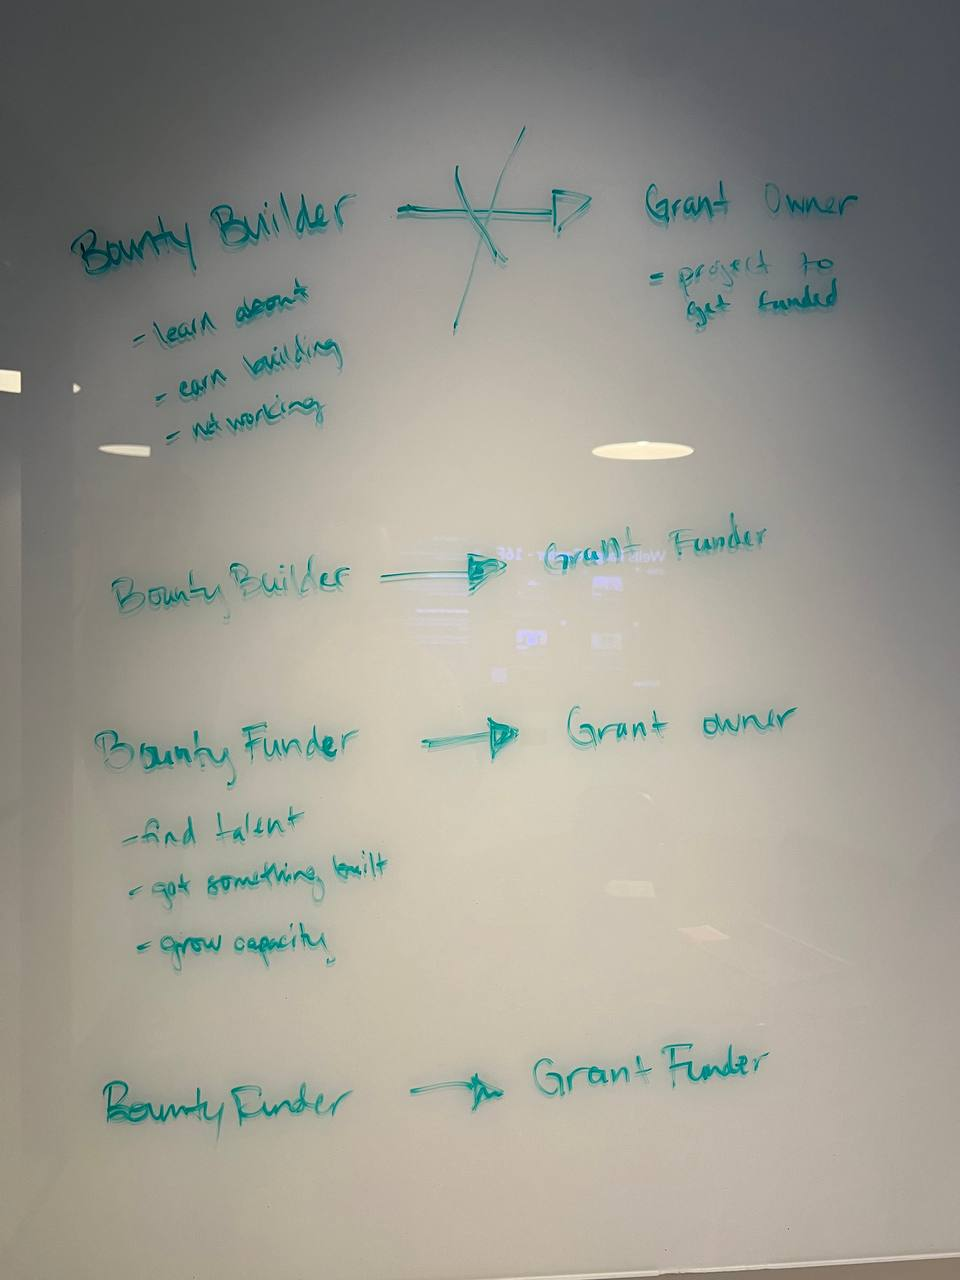 Bounty Builder
Grant Owner
- learn about
- earn building
- networking
= project to
get funded
Bounty Builder
Grant Funder
Bounty Funder
Grant owner
- find talent
- got something built
- grow capacity
Bounty Funder
Grant Funder